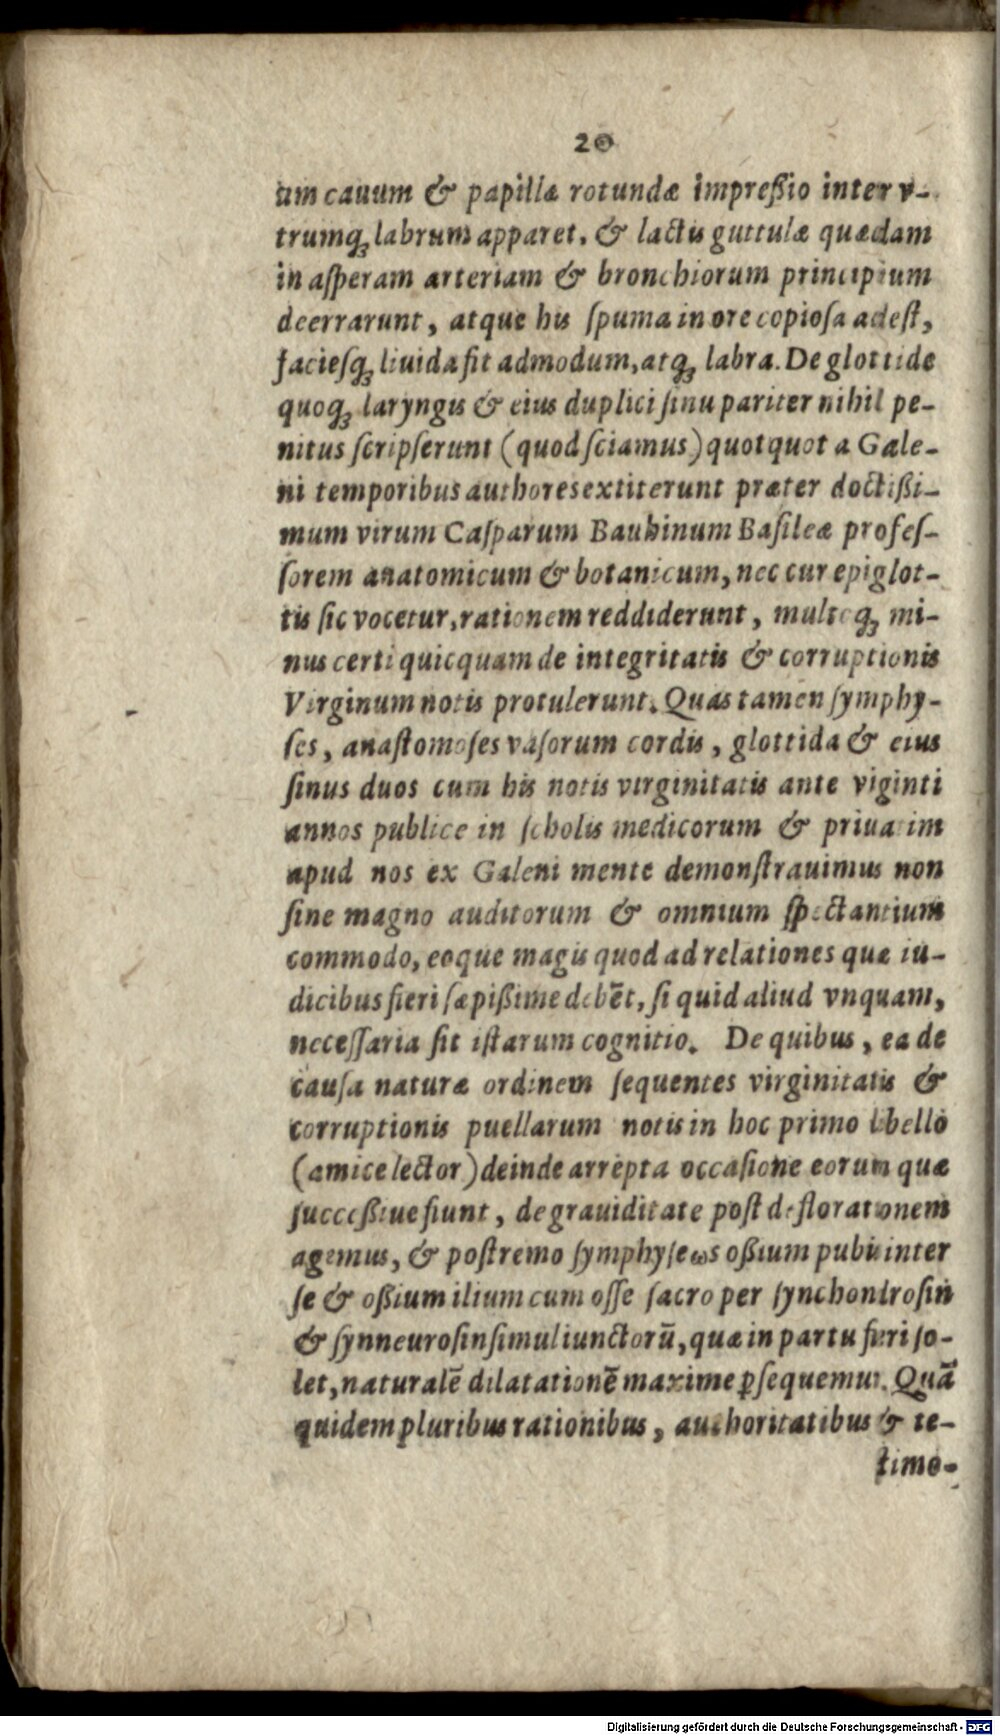 20
um cauum & papillæ rotundæ impreſſio inter v-
trumq; labrum apparet, & lactis guttulæ quædam
in aſperam arteriam & bronchiorum principium
deerrarunt, atque his ſpuma in ore copioſa adeſt,
facieſq; liuida fit admodum, atq; labra. De glottide
quoq; laryngis & eius duplici ſinu pariter nihil pe-
nitus ſcripſerunt (quod ſciamus) quotquot a Gale-
ni temporibus authores extiterunt præter doctiſſi-
mum virum Caſparum Bauhinum Baſileæ profeſ-
ſorem anatomicum & botanicum, nec cur epiglot-
tis ſic vocetur, rationem reddiderunt, multoq; mi-
nus certi quicquam de integritatis & corruptionis
Virginum notis protulerunt. Quas tamen ſymphy-
ſes, anaſtomoſes vaſorum cordis, glottida & eius
ſinus duos cum his notis virginitatis ante viginti
annos publice in ſcholis medicorum & priuatim
apud nos ex Galeni mente demonſtrauimus non
ſine magno auditorum & omnium ſpectantium
commodo, eoque magis quod ad relationes quæ iu-
dicibus fieri ſæpiſſime debēt, ſi quid aliud vnquam,
neceſſaria ſit iſtarum cognitio. De quibus, ea de
cauſa naturæ ordinem ſequentes virginitatis &
corruptionis puellarum notis in hoc primo libello
(amice lector) deinde arrepta occaſione eorum quæ
ſucceſſiue fiunt, de grauiditate poſt deflorationem
agemus, & poſtremo ſymphyſeωs oſſium pubis inter
ſe & oſſium ilium cum oſſe ſacro per ſynchondroſin
& ſynneuroſin ſimul iunctorū, quæ in partu fieri ſo-
let, naturalē dilatationē maxime ꝑſequemur. Quā
quidem pluribus rationibus, authoritatibus & te-
ſtimo-
Digitalisierung gefördert durch die Deutsche Forschungsgemeinschaft - DFG